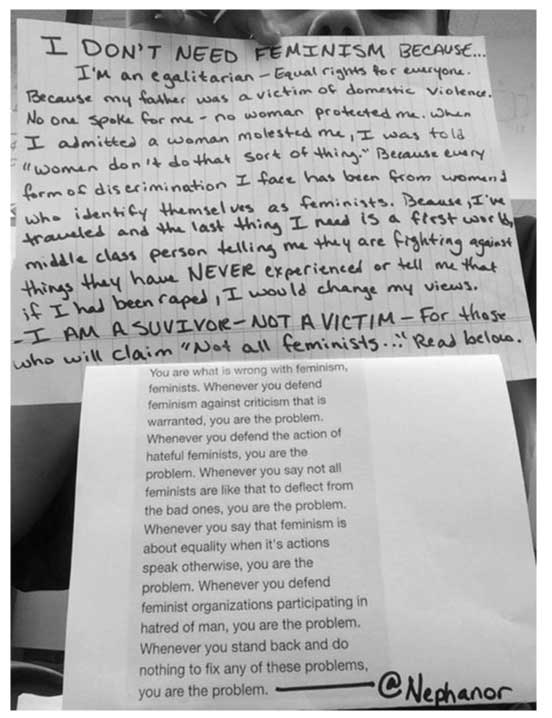 I DON'T NEED FEMINISM BECAUSE...
I'm an egalitarian - Equal rights for everyone.
Because my father was a victim of domestic violence.
No one spoke for me - no woman protected me. When
I admitted a woman molested me, I was told
"women don't do that sort of thing." Because every
form of discrimination I face has been from women
who identify themselves as feminists. Because, I've
traveled and the last thing I need is a first world,
middle class person telling me they are fighting against
things they have NEVER experienced or tell me that
if I had been raped, I would change my views.
- I AM A SUVIVOR - NOT A VICTIM - For those
who will claim "Not all feminists..." Read below.
You are what is wrong with feminism,
feminists. Whenever you defend
feminism against criticism that is
warranted, you are the problem.
Whenever you defend the action of
hateful feminists, you are the
problem. Whenever you say not all
feminists are like that to deflect from
the bad ones, you are the problem.
Whenever you say that feminism is
about equality when it's actions
speak otherwise, you are the
problem. Whenever you defend
feminist organizations participating in
hatred of man, you are the problem.
Whenever you stand back and do
nothing to fix any of these problems,
you are the problem. — @Nephanor